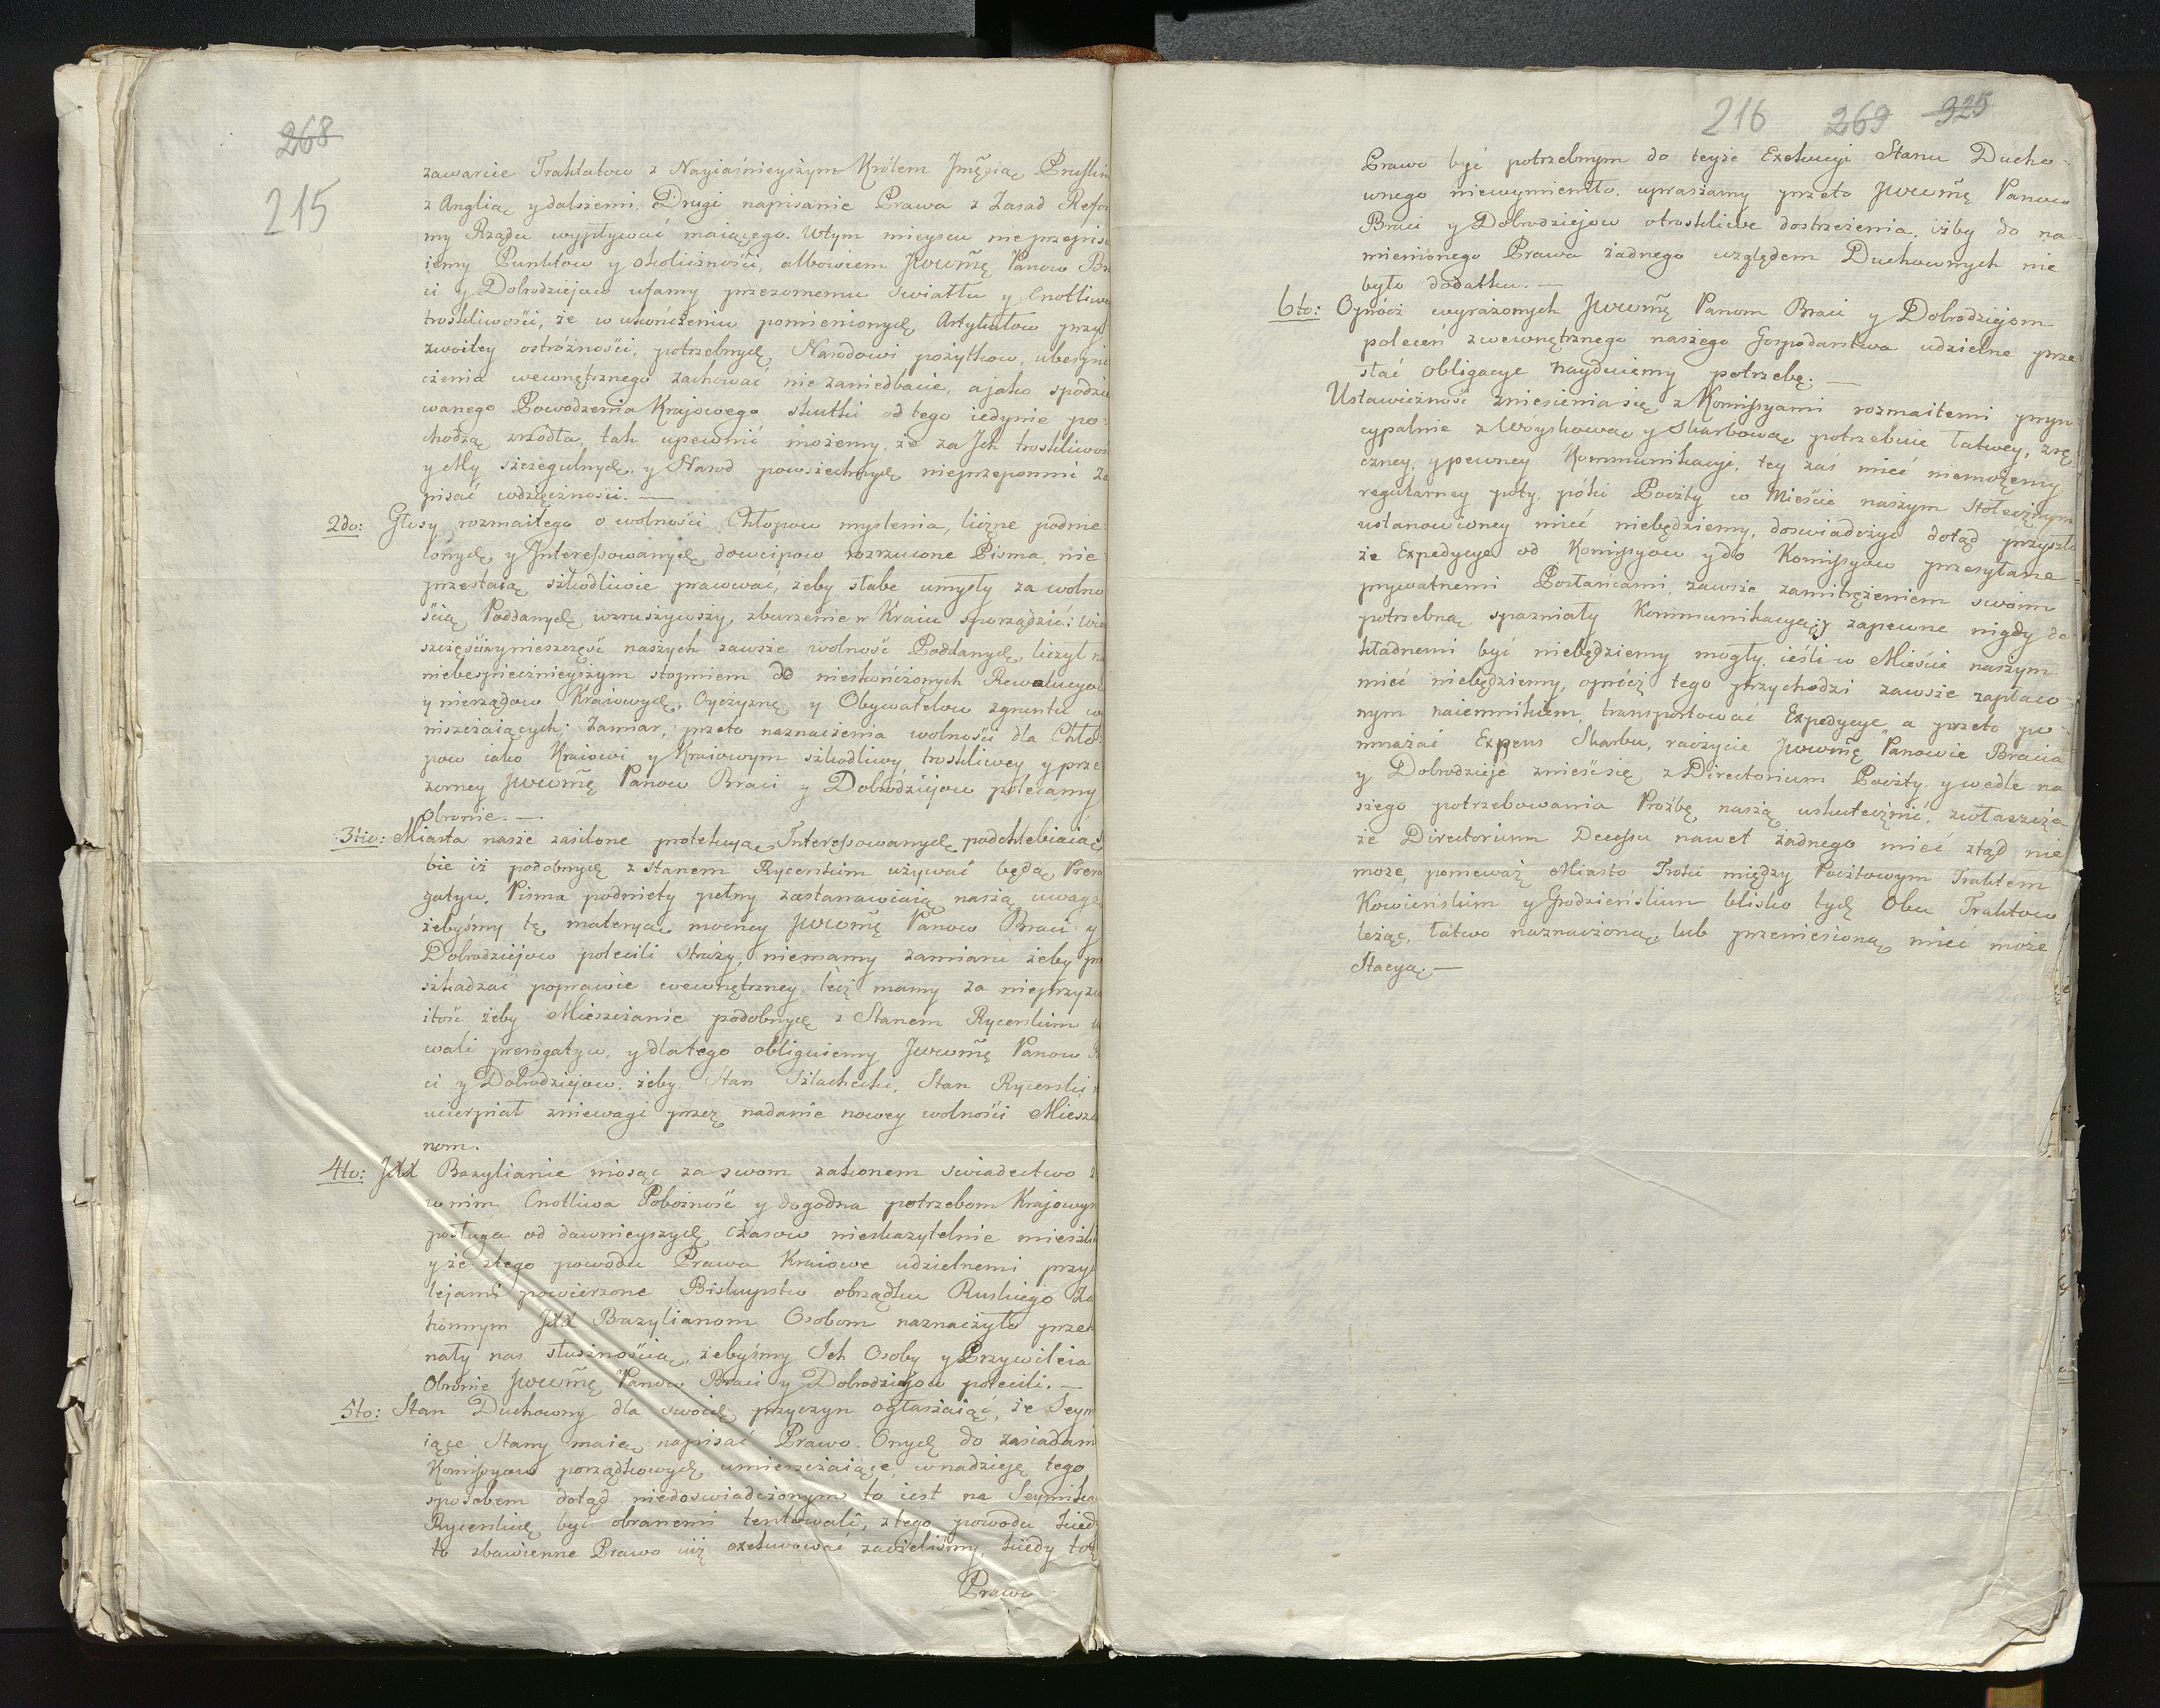 268
215
zawarcie Traktatow z Nayiaśnieyszym Królem Jmścią Pruskim
z Anglią y dalszemi, Drugi napisanie Prawa z Zasad Refor
my Rządu wypływać maiącego. Wtym mieyscu nieprzepisu
iemy Punktow y okolicznośći, albowiem Jwwmę Panow Bra
ci y Dobrodziejow ufamy przezornemu swiatłu y Cnotliwey
troskliwośći, że w ukończeniu pomienionych Artykułow przy
zwoitey ostróżnośći, potrzebnych Narodowi pożytkow, ubespie
czenia wewnętrznego zachować nie zaniedbacie, a jako spodzie
wanego Powodzenia Krajowego skutki od tego iedynie po¬
chodzą zrzodła, tak upewnić możemy, że za Jch troskliwość
y My szczegulnych y Narod powszechnych nieprzepomni za
pisać wdzięcznośći. —
2do: Głosy rozmaitego o wolnośći Chłopow myslenia, liczne podnie¬
conych y Interessowanych dowcipow rozrzucone Pisma, nie
przestaią szkodliwie pracować, żeby słabe umysły za wolno
śćią Poddanych wzruszywszy, zburzenie w Kraiu sporządzić: Wie
szczęśćia y nieszczęść naszych zawsze wolność Poddanych liczył na
niebespiecznieyszym stopniem do nieskończonych Rewolucyow
y nierządow Kraiowych, Oyczyznę y Obywatelow zgruntu w
niszczaiących: Zamiar przeto naznaczenia wolnośći dla Chło¬
pow iako Kraiowi y Kraiowym szkodliwy, troskliwey y prze
zorney Jwwmę Panow Braci y Dobrodziejow polecamy
obronie. —
3tio: Miasta nasze zasilone protekcyą Interessowanych podchlebiaią so
bie iż podobnych z Stanem Rycerskim używać będą Prero
gatyw. Pisma podniety pełny zastanawiaią naszą uwagę
żebyśmy tę materyą mocney Jwwmę Panow Braci y
Dobrodziejow polecili straży, niemamy zamiaru żeby prze
szkadzać poprawie wewnętrzney, lecz mamy za nieprzyzwo
itość żeby Mieszczanie podobnych z Stanem Rycerskim u
wali prerogatyw, y dlatego obliguiemy Jwwmę Panow Bra
ci y Dobrodziejow, żeby Stan Szlachecki, Stan Rycerski n
ucierpiał zniewagi przez nadanie nowey wolnośći Mieszcza
nom.
4to: JXX Bazylianie niosąc za swom zakonem swiadectwo z
w nim Cnotliwa Pobożność y dogodna potrzebom Krajowym
posługa od dawnieyszych czasow nieskazytelnie mieszka
y że ztego powodu Prawa Kraiowe udzielnemi przywi
lejami powierzone Biskupstw obrządku Ruskiego Za
konnym JXX Bazylianom Osobom naznaczyło przeko
nały nas słusznośćią, żebyśmy Jch Osoby y Przywileia
Obronie Jwwmę Panow Braci y Dobrodziejow polecili. —
5to: Stan Duchowny dla swoich przyczyn ogłaszaiąć, że Seym
iące Stany maią napisać Prawo Onych do zasiadani
Komissyow porządkowych umieszczaiące, w nadzieję tego
sposobem dotąd niedoswiadczonym to iest na Seymika
Rycerskich być obranemi tentowali, ztego powodu kied
to zbawienne Prawo iuż exekwować zaczeliśmy, kiedy toż
Prawo
216 269 325
Prawo być potrzebnym do teyże Exekucyi Stanu Ducho¬
wnego niewymieniło, upraszamy przeto Jwwmę Panow
Braci y Dobrodziejow otroskliwe dostrzeżenia, iżby do na¬
mienionego Prawa żadnego względem Duchownych nie
było dodatku. —
6to: Oprócz wyrażonych Jwwmę Panom Braci y Dobrodziejom
poleceń zwewnętrznego naszego Gospodarstwa udzielne prze
słać obligacye nayduiemy potrzebę. —
Ustawiczność zniesienia się z Komissyami rozmaitemi pryn¬
cypalnie z Woyskową y Skarbową potrzebuie łatwey, zrę
czney, y pewney Kommunikacyi, tey zaś mieć niemożemy
regularney póty, póki Poczty w Mieśćie naszym Stołecznym
ustanowioney mieć niebędziemy, doswiadczyć dotąd przyszło
że Expedycye od Komissyow y do Komissyow przesyłane
prywatnemi Posłańcami zawsze zamitrężeniem swoim
potrzebną spazniały Kommunikacyą; y zapewne nigdy do
kładnemi być niebędziemy mogły, ieśli w Mieśćie naszym
mieć niebędziemy, oprócz tego przychodzi zawsze zapłaco
nym naiemnikiem transportować Expedycye, a przeto po¬
mnażać Expens Skarbu, raczycie Jwwmę Panowie Bracia
y Dobrodzieje znieśćsię z Directorium Poczty y wedle na
szego potrzebowania Proźbę naszą uskutecznić, zwłaszcza
że Directorium Decessu nawet żadnego mieć ztąd nie
może, ponieważ Miasto Troki między Pocztowym Traktem
Kowieńskim y Grodzieńskim blisko tych Obu Traktow
leżąc, łatwo naznaczoną, lub przeniesioną mieć może
Stacyą. —